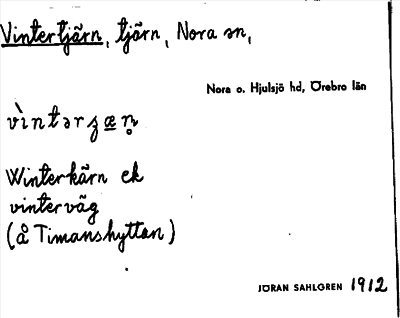 Vintertjärn, tjärn, Nora sn,
Nora o. Hjulsjö hd, Örebro län
vìntərʒæn̥
Winterkärn ek
vinterväg
(å Timanshyttan)
JÖRAN SAHLGREN 1912